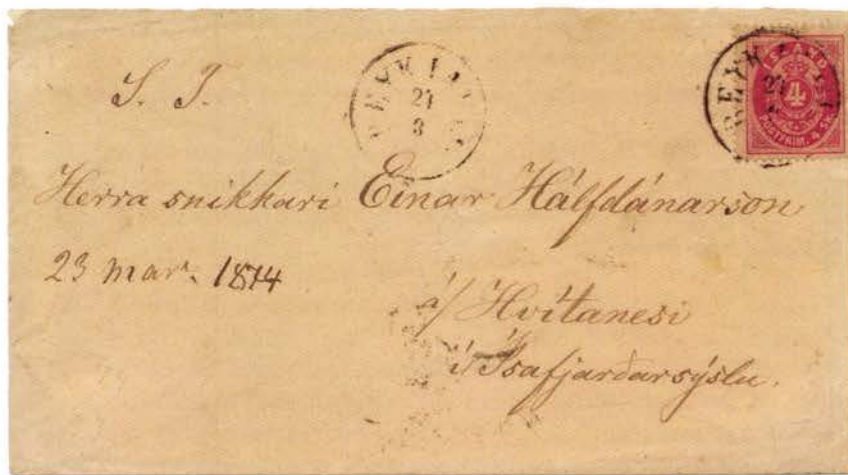 S. T.
REYKJAVIK
21
3
ISLAND
4
POSTFRIM. 4 SK.
Herra snikkari Einar Hálfdánarson
23 mar. 1874
á/ Hvítanesi
í Ísafjarðarsýslu.